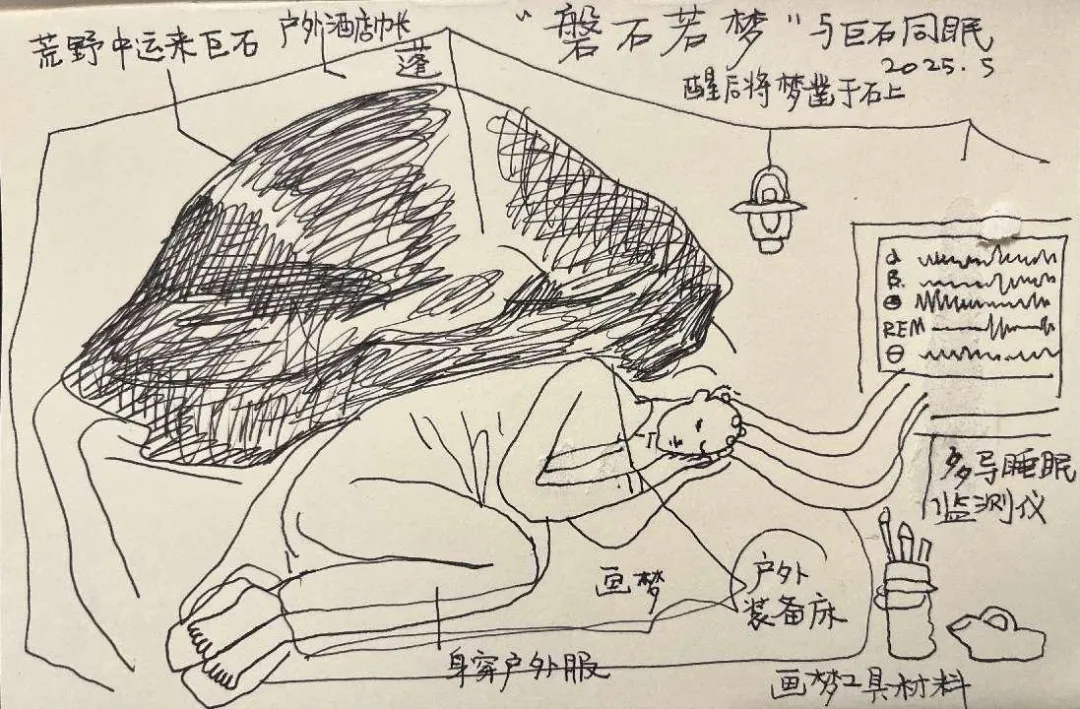 荒野中运来巨石
户外酒店帐
蓬
“磐石若梦”与巨石同眠
2025.5
醒后将梦凿于石上
α
β.
REM
θ
多导睡眠
监测仪
画梦
户外
装备床
身穿户外服
画梦工具材料